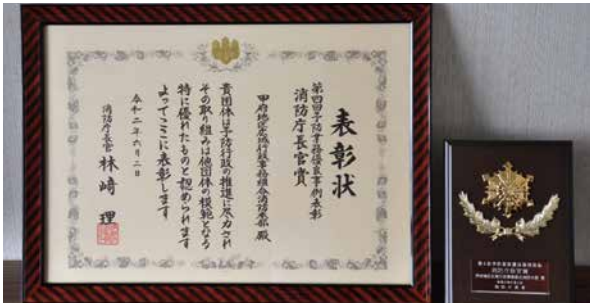 表彰状
第四回予防業務優良事例表彰
消防庁長官賞
甲府地区広域行政事務組合消防本部 殿
貴団体は予防行政の推進に尽力され
その取り組みは他団体の模範となる
特に優れたものと認められます
よってここに表彰します
令和二年六月二日
消防庁長官 林﨑 理
消防庁長官賞